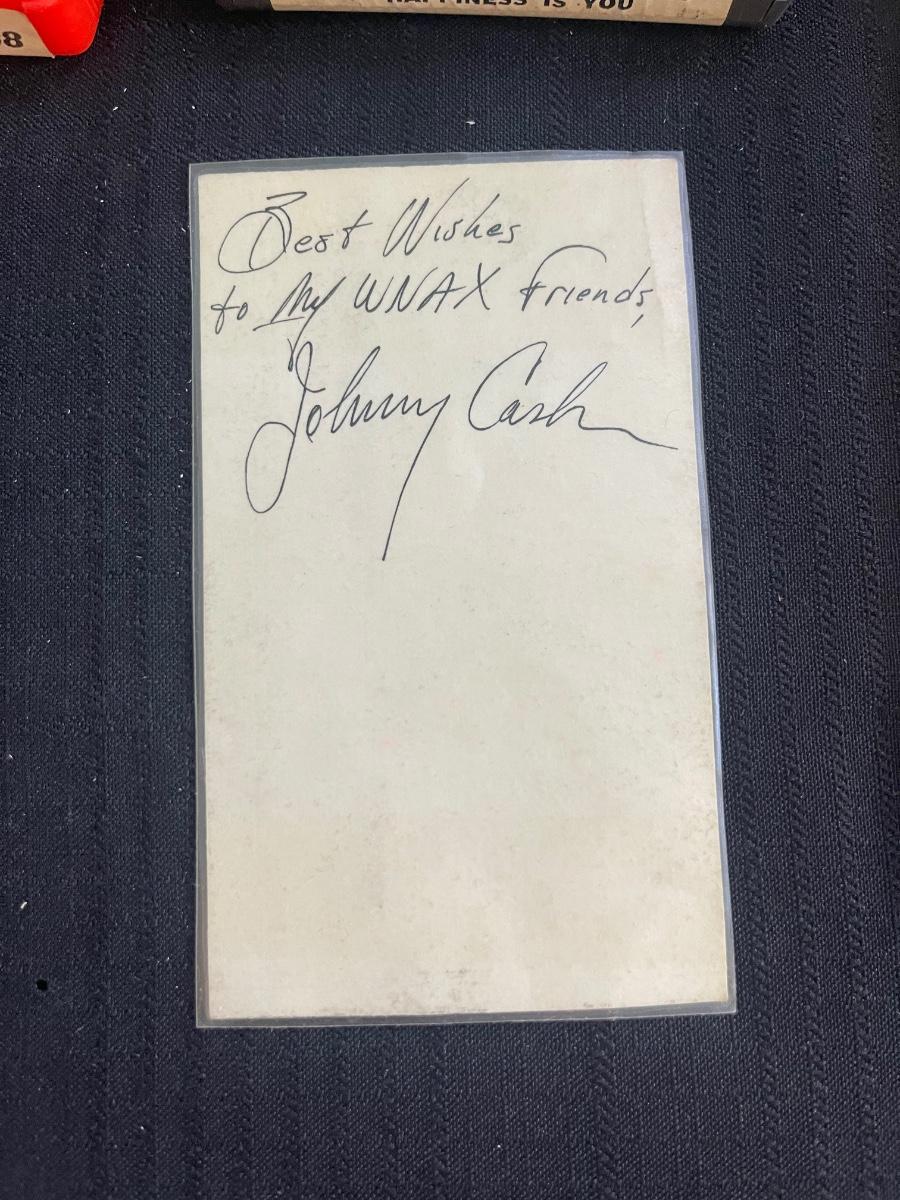 38
HAPPINESS IS YOU
Best Wishes
to My WNAX friends,
Johnny Cash